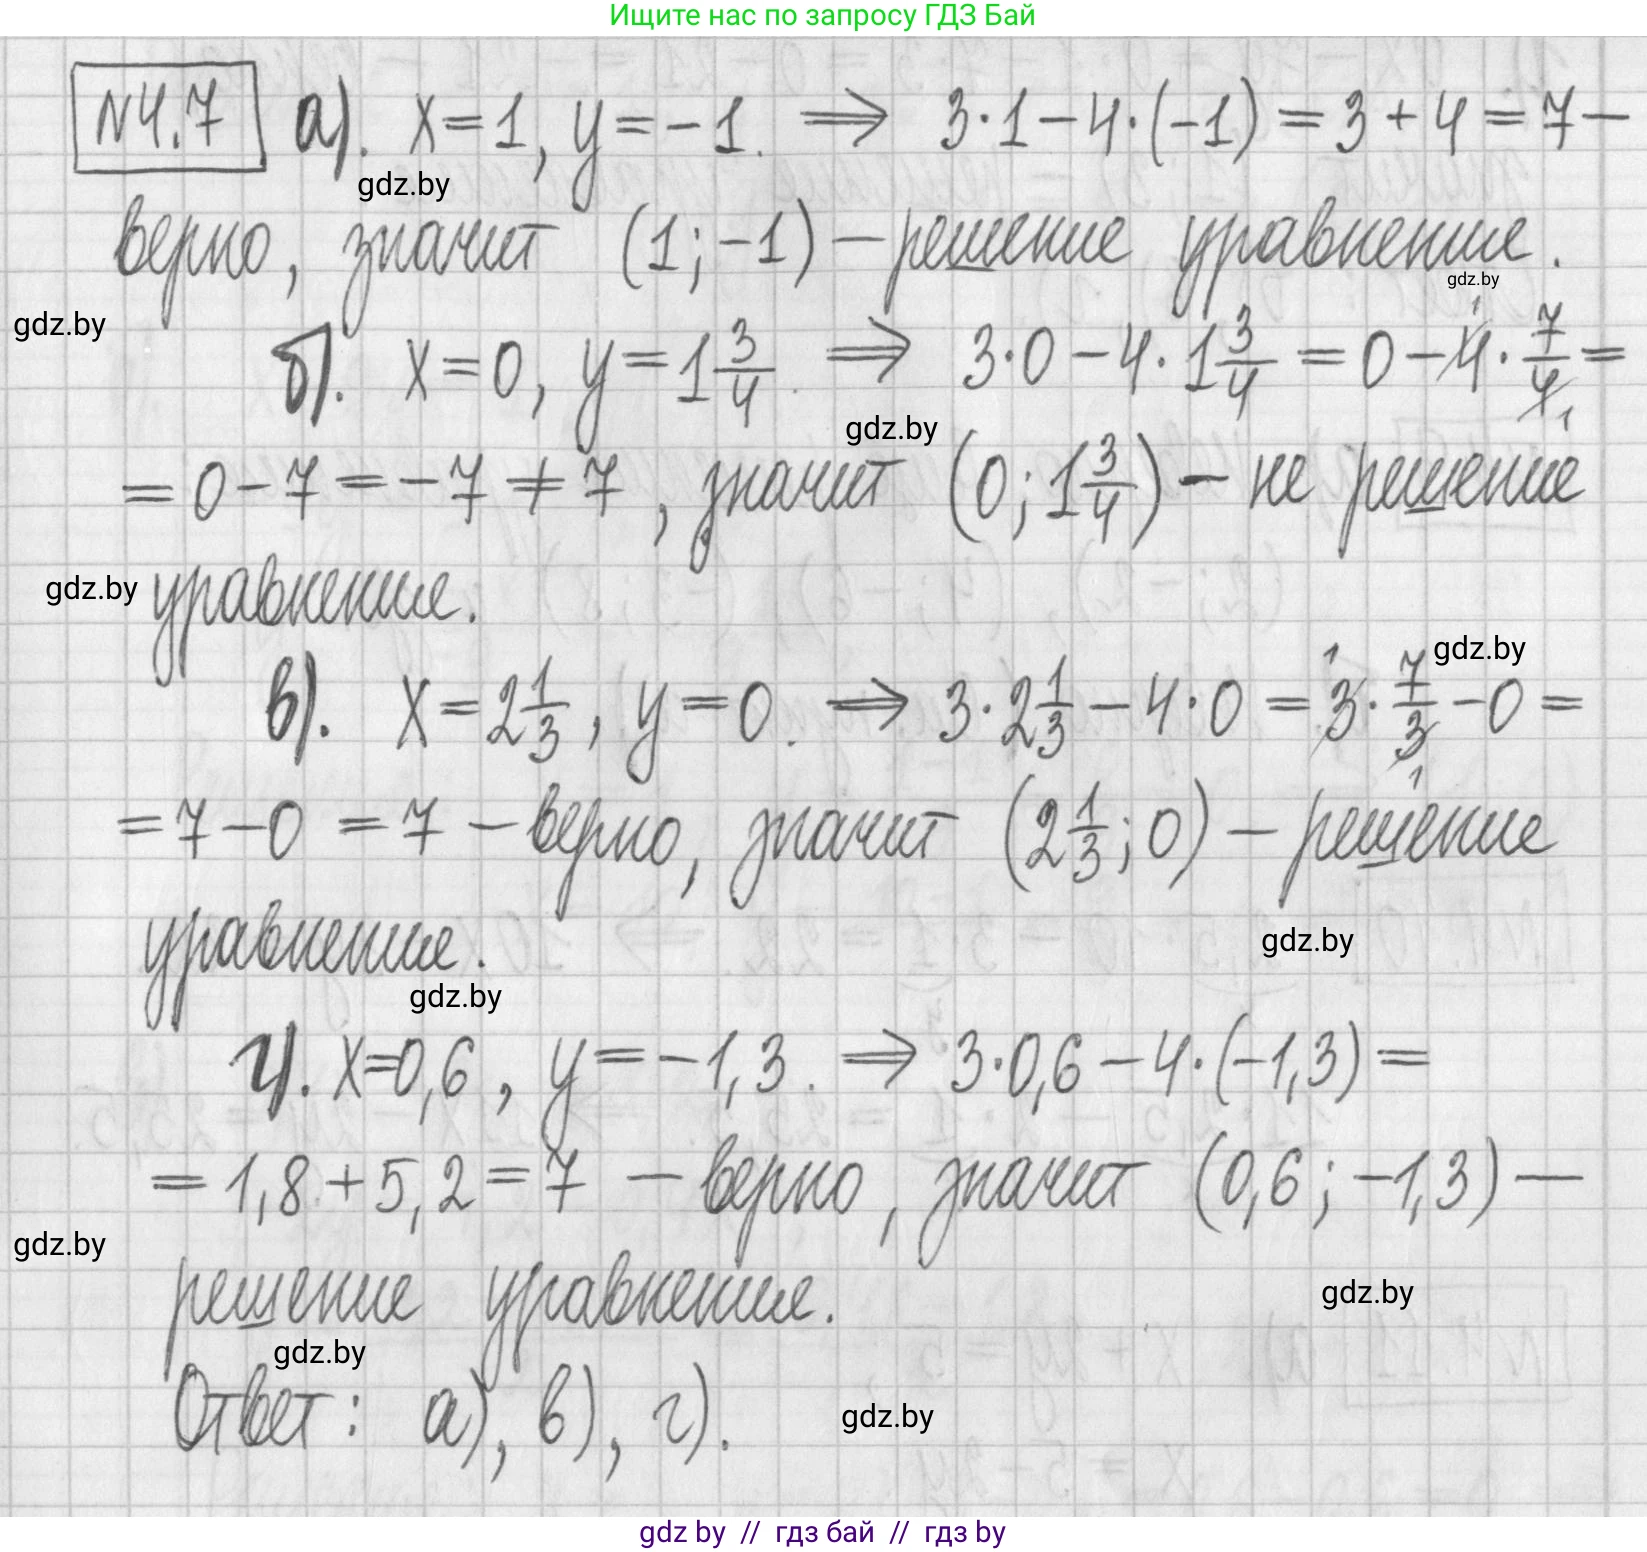 Ищите нас по запросу ГДЗ Бай
N4.7 а). x=1, y=-1. ⟹ 3·1-4·(-1)=3+4=7-
gdz.by
верно, значит (1;-1)-решение уравнение.
gdz.by
gdz.by
б). x=0, y=1 3/4. ⟹ 3·0-4·1 3/4=0-4·7/4=
gdz.by
=0-7=-7≠7, значит (0;1 3/4)-не решение
gdz.by уравнение.
gdz.by
в). x=2 1/3, y=0. ⟹ 3·2 1/3-4·0=3·7/3-0=
=7-0=7-верно, значит (2 1/3;0)-решение
уравнение.
gdz.by
gdz.by
г). x=0,6, y=-1,3. ⟹ 3·0,6-4·(-1,3)=
=1,8+5,2=7 -верно, значит (0,6;-1,3)-
gdz.by
решение уравнение.
gdz.by
gdz.by
Ответ: а), в), г).
gdz.by
gdz by // гдз бай // гдз by